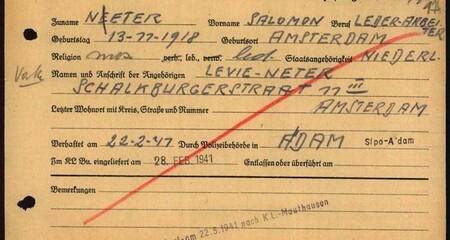 Zuname NEETER Vorname SALOMON Beruf LEDER-ARBEITER
Geburtstag 13-11-1918 Geburtsort AMSTERDAM
Religion mos verh, led., verw. led Staatsangehörigkeit NIEDERL.
Vater Namen und Anschrift der Angehörigen LEVIE-NETER
SCHALKBURGERSTRAAT 11 III
Letzter Wohnort mit Kreis, Straße und Nummer AMSTERDAM
Verhaftet am 22-2-41 Durch Polizeibehörde in A'DAM Sipo-A'dam
Im KL Bu. eingeliefert am 28. FEB. 1941 Entlassen oder überführt am
Bemerkungen
am 22.5.1941 nach K.L.-Mauthausen